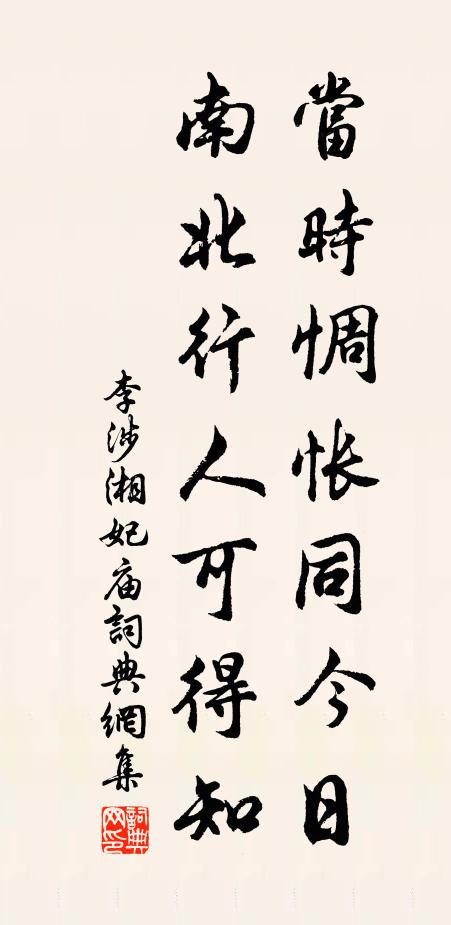 當時惆怅同今日
南北行人可得知
李涉湘妃庙詞典網集
詞典